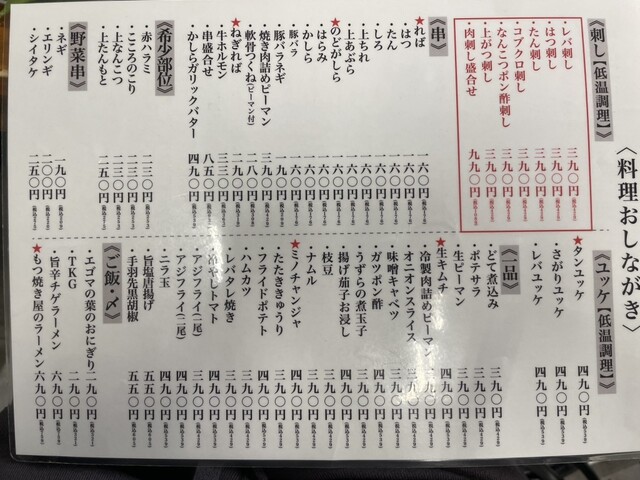 〈料理おしながき〉
《刺し【低温調理】》
・レバ刺し 三九〇円
・はつ刺し 三九〇円
・たん刺し 三九〇円
・コブクロ刺し 三九〇円
・なんこつポン酢刺し 三九〇円
・上がつ刺し 三九〇円
・肉刺し盛合せ 九九〇円
《串》
★れば 一六〇円
・はつ 一六〇円
・たん 一六〇円
・しろ 一六〇円
・上ちれ 一六〇円
・上あぶら 一六〇円
★のどがしら 一六〇円
・はらみ 一六〇円
・かしら 一六〇円
・豚バラ 一六〇円
・豚バラネギ 一九〇円
・焼き肉詰めピーマン 一九〇円
・軟骨つくね(ピーマン付) 二八〇円
★ねぎれば 一九〇円
・牛ホルモン 三三〇円
・串盛合せ 八五〇円
・かしらガリックバター 四九〇円
《希少部位》
・赤ハラミ 二三〇円
・こころのこり 二三〇円
・上なんこつ 二三〇円
・上たんもと 二五〇円
《野菜串》
・ネギ 一九〇円
・エリンギ 二〇〇円
・シイタケ 二五〇円
《ユッケ【低温調理】》
★タンユッケ 四九〇円
・さがりユッケ 四九〇円
・レバユッケ 四九〇円
《一品》
・どて煮込み 三九〇円
・ポテサラ 三九〇円
・生ピーマン 三九〇円
★生キムチ 三九〇円
・冷製肉詰めピーマン 三九〇円
・オニオンスライス 三九〇円
・味噌キャベツ 三九〇円
・ガツポン酢 三九〇円
・うずらの煮玉子 三九〇円
・揚げ茄子お浸し 三九〇円
・枝豆 三九〇円
・ナムル 三九〇円
★ミノチャンジャ
・たたききゅうり
・フライドポテト
・ハムカツ
・レバタレ焼き
・冷やしトマト
・アジフライ(一尾)
・アジフライ(二尾)
・ニラ玉 四九〇円
・旨塩唐揚げ 五五〇円
・手羽先黒胡椒 五五〇円
《ご飯・〆》
・エゴマの葉のおにぎり 二九〇円
・TKG 二九〇円
・旨辛チゲラーメン 六九〇円
★もつ焼き屋のラーメン 六九〇円